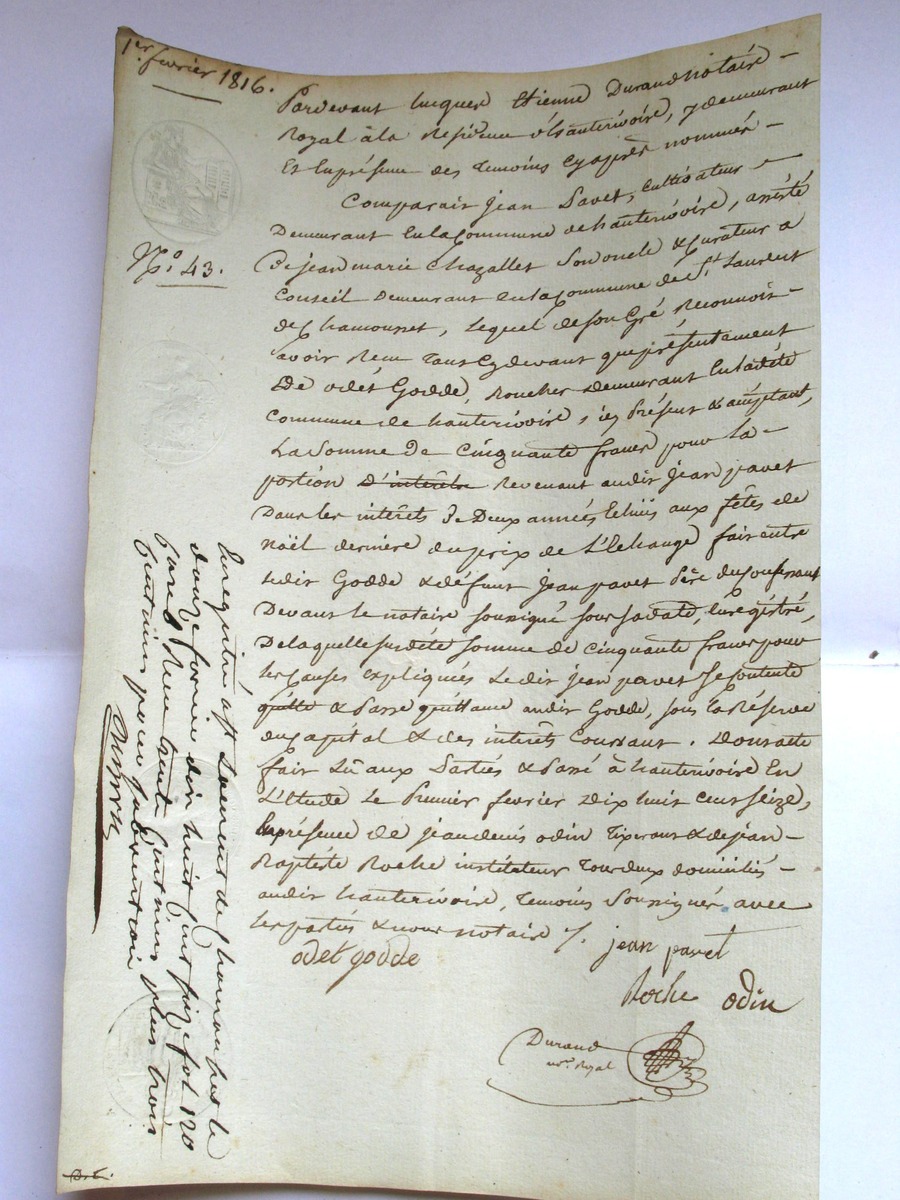 1er février 1816.
N.o 43.
Pardevant Jacques Etienne Durand notaire
Royal à la Résidence d'hauterivoire, y demeurant
Et En présence des Temoins cy après nommés
Comparait Jean Pavet, cultivateur
Demeurant En la Commune de hauterivoire, assisté
De jean marie Chazallet Son oncle & Curateur a
Conseil Demeurant En la Commune de St Laurent
de Chamousset, Lequel de son Gré Reconnoit
avoir Reçu Tant Cy devant que présentament
De odet Godde, Rocher Demeurant En la dite
Commune de hauterivoire, icy Présent & acceptant,
La Somme De Cinquante francs pour La
portion d'intérêts Revenant audit Jean pavet
Dans les intérêts De Deux années Echues aux fêtes de
Noël dernière du prix de L'Echange fait entre
Ledit Godde & défunt jean pavet Père du Confessant
Devant le notaire soussigné sous sa date, Enregistré,
De laquelle susdite somme de cinquante francs pour
les Causes expliquées Le dit jean pavet Se contente
quitte & Passe quittance audit Godde, sous la Réserve
du Capital & des interêts Courrant. Dont acte
fait Lû aux Parties & Passé à hauterivoire En
L'Etude Le Premier février Dix huit Cent Seize,
En présence de jean denis odin Tixerant & de jean
Baptiste Roche instituteur Tous deux domiciliés
audit hauterivoire, Temoins Soussignés avec
les parties & nous notaire /.
odet godde
jean pavet
Roche odin
Durand
nre Royal
Enregistré à St Laurent de Chamousset le
douze février dix huit cent seize fol 120
Reçu trente centimes plus trois
centimes pour subvention